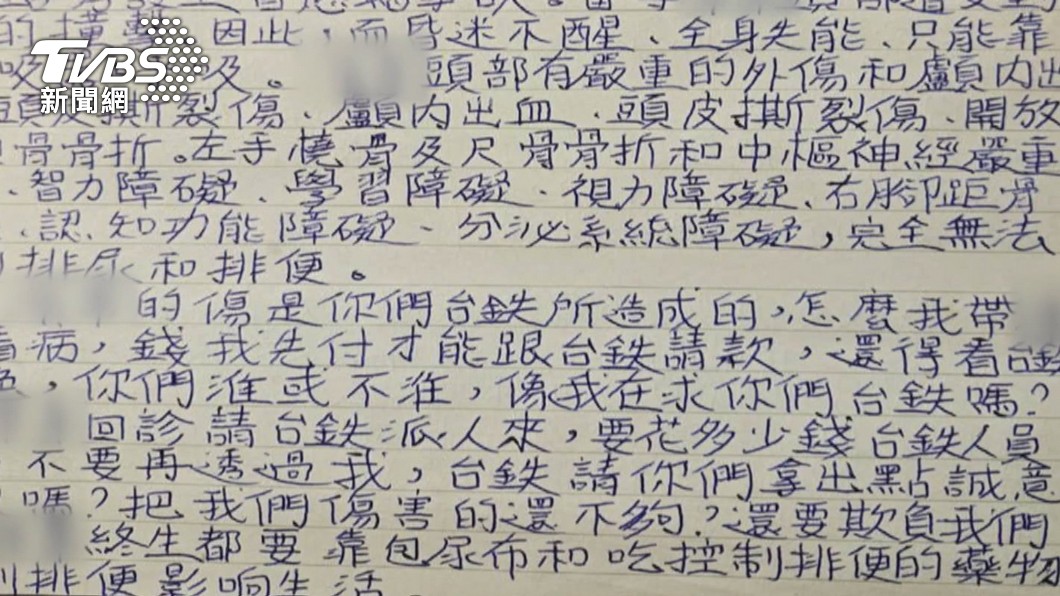 的撞擊,因此,而昏迷不醒、全身失能、只能靠
吸 及。 頭部有嚴重的外傷和顱內出
TVBS
新聞網
頭皮撕裂傷、顱內出血、頭皮撕斯裂傷、開放
骨骨折。左手橈骨及尺骨骨折和中樞神經嚴重
、智力障礙、學習障礙、視力障礙、右腳距骨
、認知功能障礙、分泌系統障礙,完全無法
排尿和排便。
的傷是你們台鉄所造成的,怎麼我帶
看病,錢我先付才能跟台鉄請款,還得看台鉄
色,你們准或不准,像我在求你們台鉄嗎?
回診請台鉄派人來,要花多少錢台鉄人員
不要再透過我,台鉄請你們拿出點誠意
嗎?把我們傷害的還不夠?還要欺負我們
終生都要靠包尿布和吃控制排便的藥物
制排便影响生活。